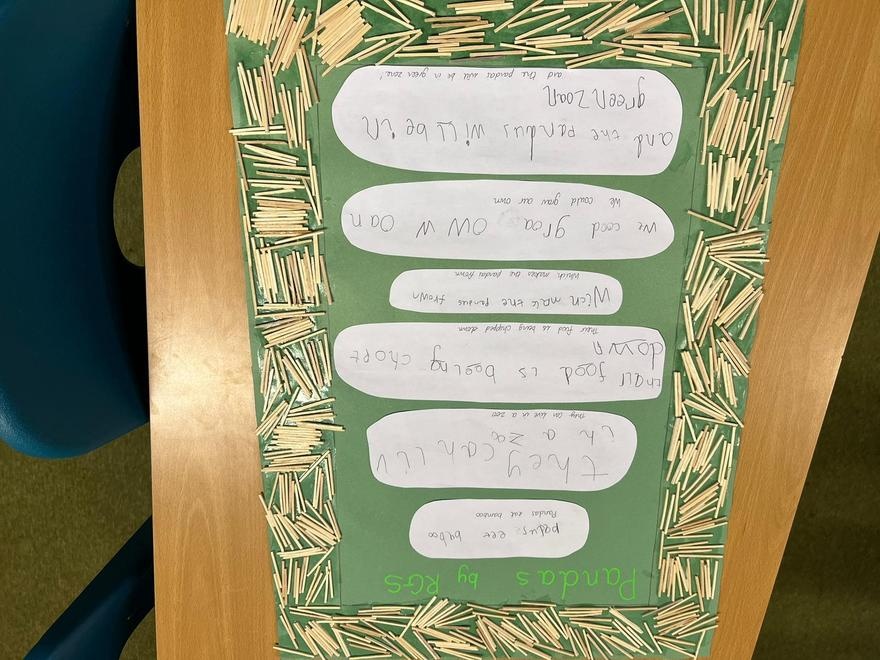 Pandas by RGS
padus eet baboo
Pandas eat bamboo
they can liv
in a zoo
They can live in a zoo
thair food is beeing chopt
down
Their food is being chopped down
Wich mak the pandus frown
Which makes the pandas frown
We cood groa oww oan
We could grow our own
and the pandus will be in
green zoan
and the pandas will be in green zone!